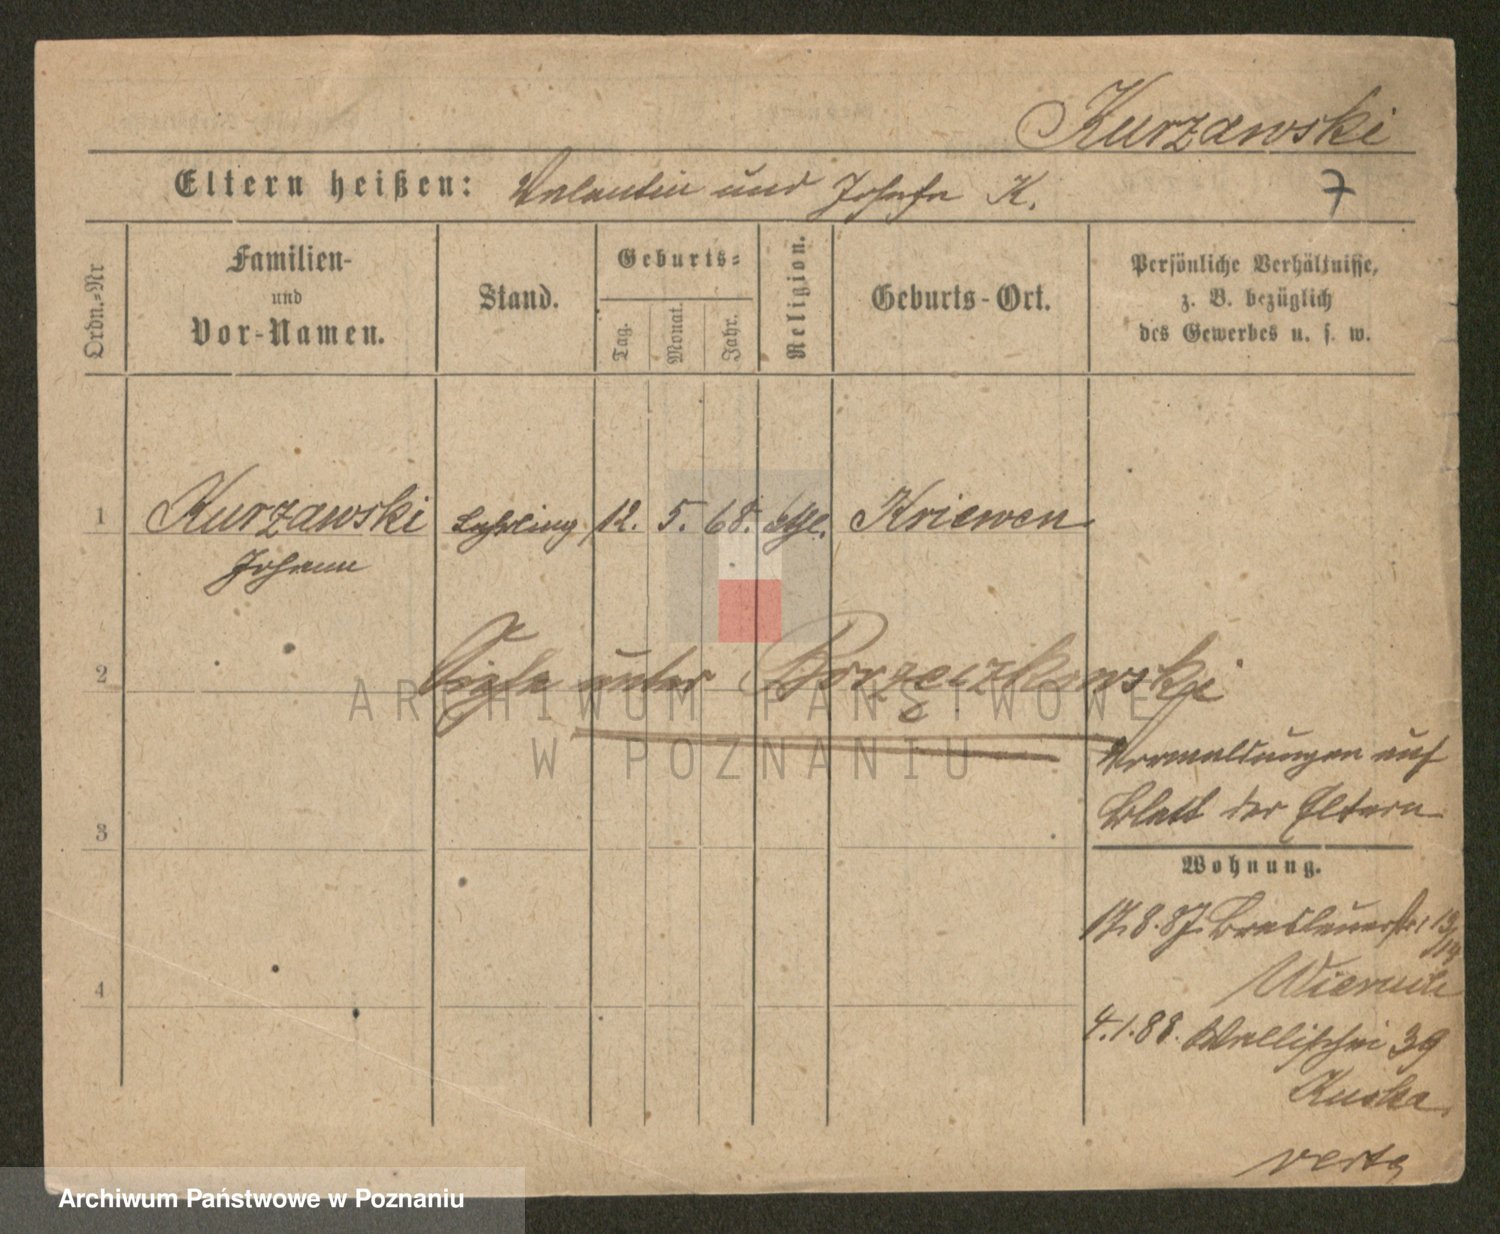 Kurzawski
Eltern heißen: Valentin und Josefa K.
7
Ordn.-Nr
Familien-
und
Vor-Namen.
Stand.
Geburts-
Tag.
Monat.
Jahr.
Religion.
Geburts-Ort.
Persönliche Verhältnisse,
z. B. bezüglich
des Gewerbes u. s. w.
1 Kurzawski Lehrling 12. 5. 68. Kriewen
Johann
2
Siehe unter Borzęczkowski
ARCHIWUM PAŃSTWOWE
W POZNANIU
auf
Blatt der Eltern
3
Wohnung.
17.8.87. Breslauerstr. 13/14
4
4.1.88. Wallischei 39
verte
Archiwum Państwowe w Poznaniu